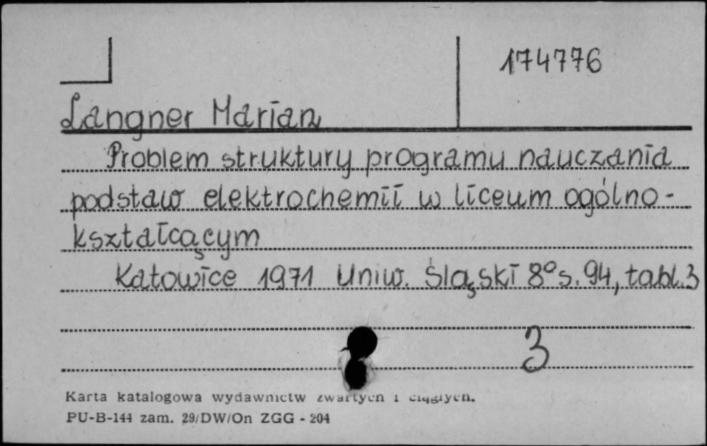 174776
Langner Marian
Problem struktury programu nauczania
podstaw elektrochemii w liceum ogólno-
kształcącym
Katowice 1971 Uniw. Śląski 8° s. 94, tabl. 3
3
Karta katalogowa wydawnictw zwartych i ciągłych.
PU-B-144 zam. 29/DW/On ZGG - 204